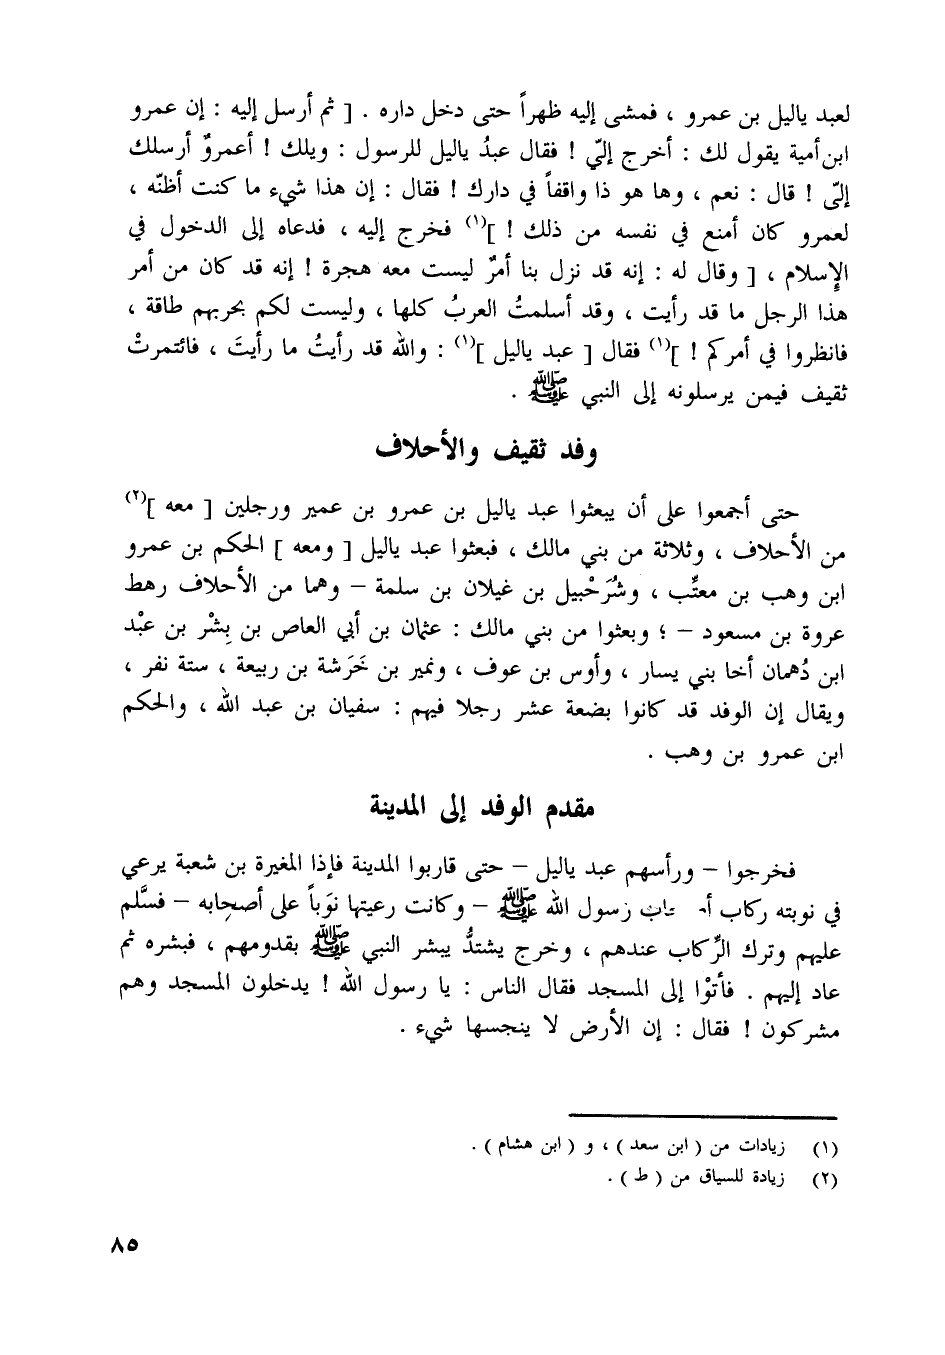 لعبد ياليل بن عمرو ، فمشى إليه ظهراً حتى دخل داره . [ ثم أرسل إليه : إن عمرو
ابن أمية يقول لك : أخرج إليّ ! فقال عبدُ ياليل للرسول : ويلك ! أعمروٌ أرسلك
إليّ ! قال : نعم ، وها هو ذا واقفاً في دارك ! فقال : إن هذا شيء ما كنت أظنّه ،
لعمرو كان أمنع في نفسه من ذلك ! ](١) فخرج إليه ، فدعاه إلى الدخول في
الإِسلام ، [ وقال له : إنه قد نزل بنا أمرٌ ليست معه هجرة ! إنه قد كان من أمر
هذا الرجل ما قد رأيت ، وقد أسلمتُ العربُ كلها ، وليست لكم بحربهم طاقة ،
فانظروا في أمركم ! ](١) فقال [ عبد ياليل ](١) : والله قد رأيتُ ما رأيتَ ، فائتمرتْ
ثقيف فيمن يرسلونه إلى النبي ﷺ .
وفد ثقيف والأحلاف
حتى أجمعوا على أن يبعثوا عبد ياليل بن عمرو بن عمير ورجلين [ معه ](٢)
من الأحلاف ، وثلاثة من بني مالك ، فبعثوا عبد ياليل [ ومعه ] الحكم بن عمرو
ابن وهب بن معتِّب ، وشُرَحْبيل بن غيلان بن سلمة – وهما من الأحلاف رهط
عروة بن مسعود – ؛ وبعثوا من بني مالك : عثمان بن أبي العاص بن بِشْر بن عبْد
ابن دُهمان أخا بني يسار ، وأوس بن عوف ، ونمير بن خَرَشة بن ربيعة ، ستة نفر ،
ويقال إن الوفد قد كانوا بضعة عشر رجلا فيهم : سفيان بن عبد الله ، والحكم
ابن عمرو بن وهب .
مقدم الوفد إلى المدينة
فخرجوا – ورأسهم عبد ياليل – حتى قاربوا المدينة فإذا المغيرة بن شعبة يرعي
في نوبته ركاب رسول الله ﷺ – وكانت رعيتها نوَباً على أصحابه – فسَّلم
عليهم وترك الرِّكاب عندهم ، وخرج يشتدُّ يبشر النبي ﷺ بقدومهم ، فبشره ثم
عاد إليهم . فأتوْا إلى المسجد فقال الناس : يا رسول الله ! يدخلون المسجد وهم
مشركون ! فقال : إن الأرض لا ينجسها شيء .
(١) زيادات من ( ابن سعد ) ، و ( ابن هشام ) .
(٢) زيادة للسياق من ( ط ) .
٨٥